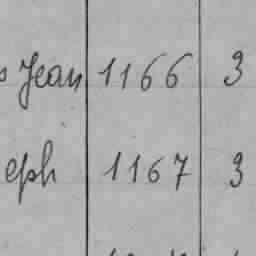 s Jean 1166 3
eph 1167 3